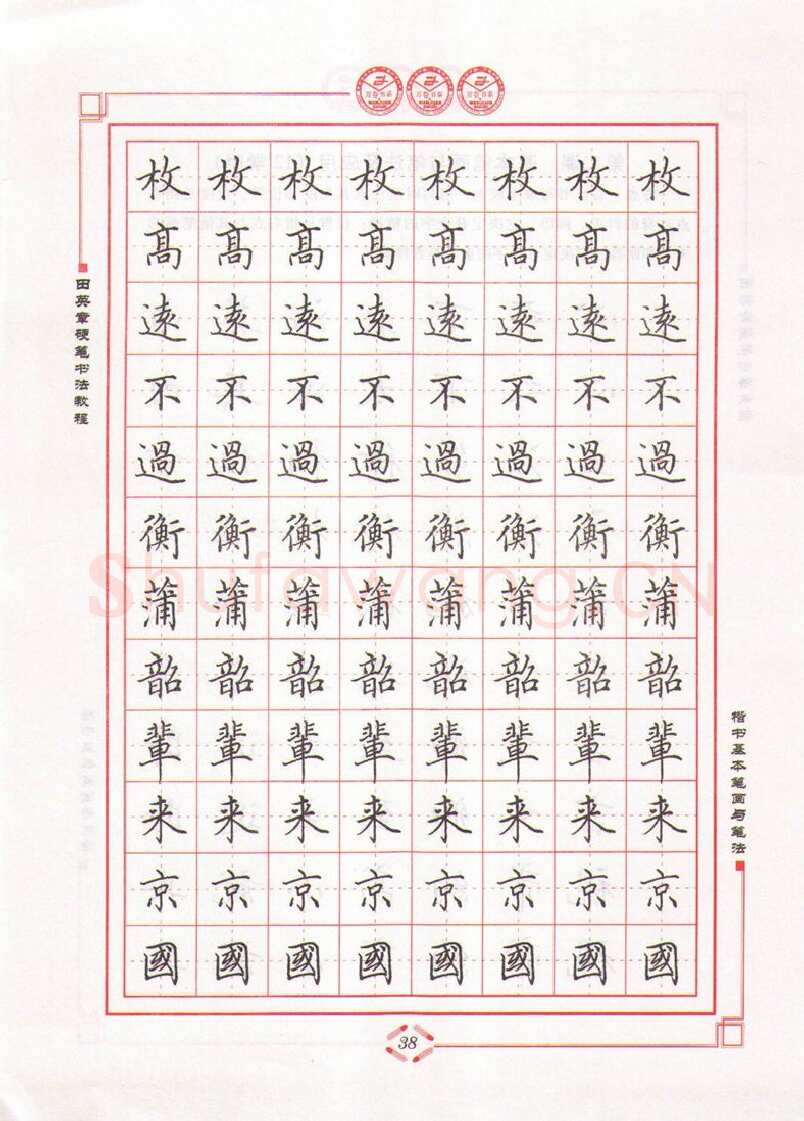 枚枚枚枚枚枚枚枚
髙髙髙髙髙髙髙髙
遠遠遠遠遠遠遠遠
不不不不不不不不
過過過過過過過過
衡衡衡衡衡衡衡衡
蒲蒲蒲蒲蒲蒲蒲蒲
韶韶韶韶韶韶韶韶
輩輩輩輩輩輩輩輩
来来来来来来来来
京京京京京京京京
國國國國國國國國
田英章硬笔书法教程
楷书基本笔画与笔法
38
Shufawang.CN